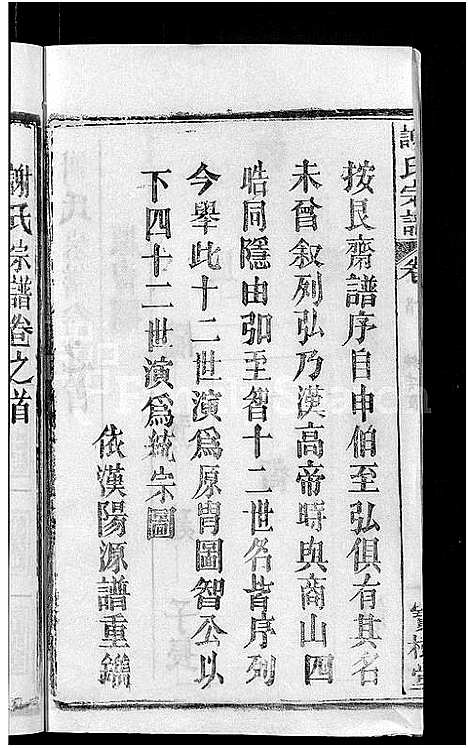 謝氏宗譜卷
按艮齋譜序自申伯至弘俱有其名
未曾敘列弘乃漢高帝時與商山四
皓同隱由弘至智十二世名皆序列
今舉此十二世演爲原胄圖智公以
下四十二世演爲統宗圖
依漢陽源譜重鐫
謝氏宗譜卷之首